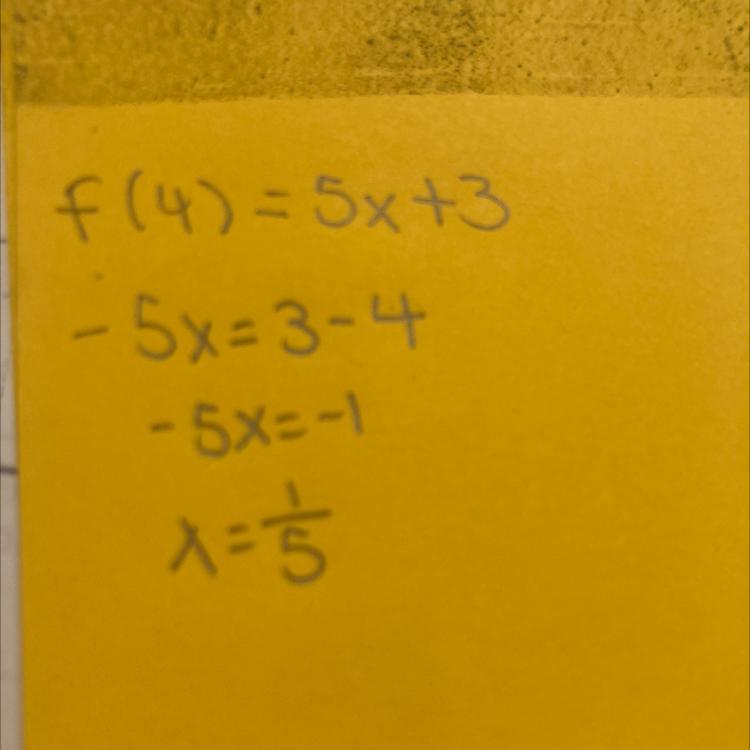 f(4) = 5x+3
- 5x = 3 - 4
- 5x = -1
x = 1/5